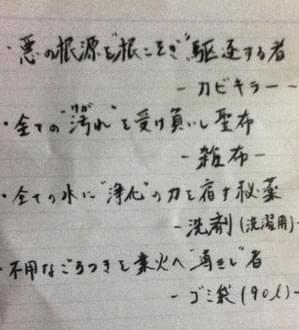 ・悪の根源を"根こそぎ"駆逐する者
- カビキラー -
・全ての"汚れ"を受け負いし聖布
けが
- 雑布 -
・全ての水に"浄化"の力を宿す秘薬
- 洗剤 (洗濯用) -
・不用なごろつきを業火へ"導きし"者
- ゴミ袋 (90ℓ) -